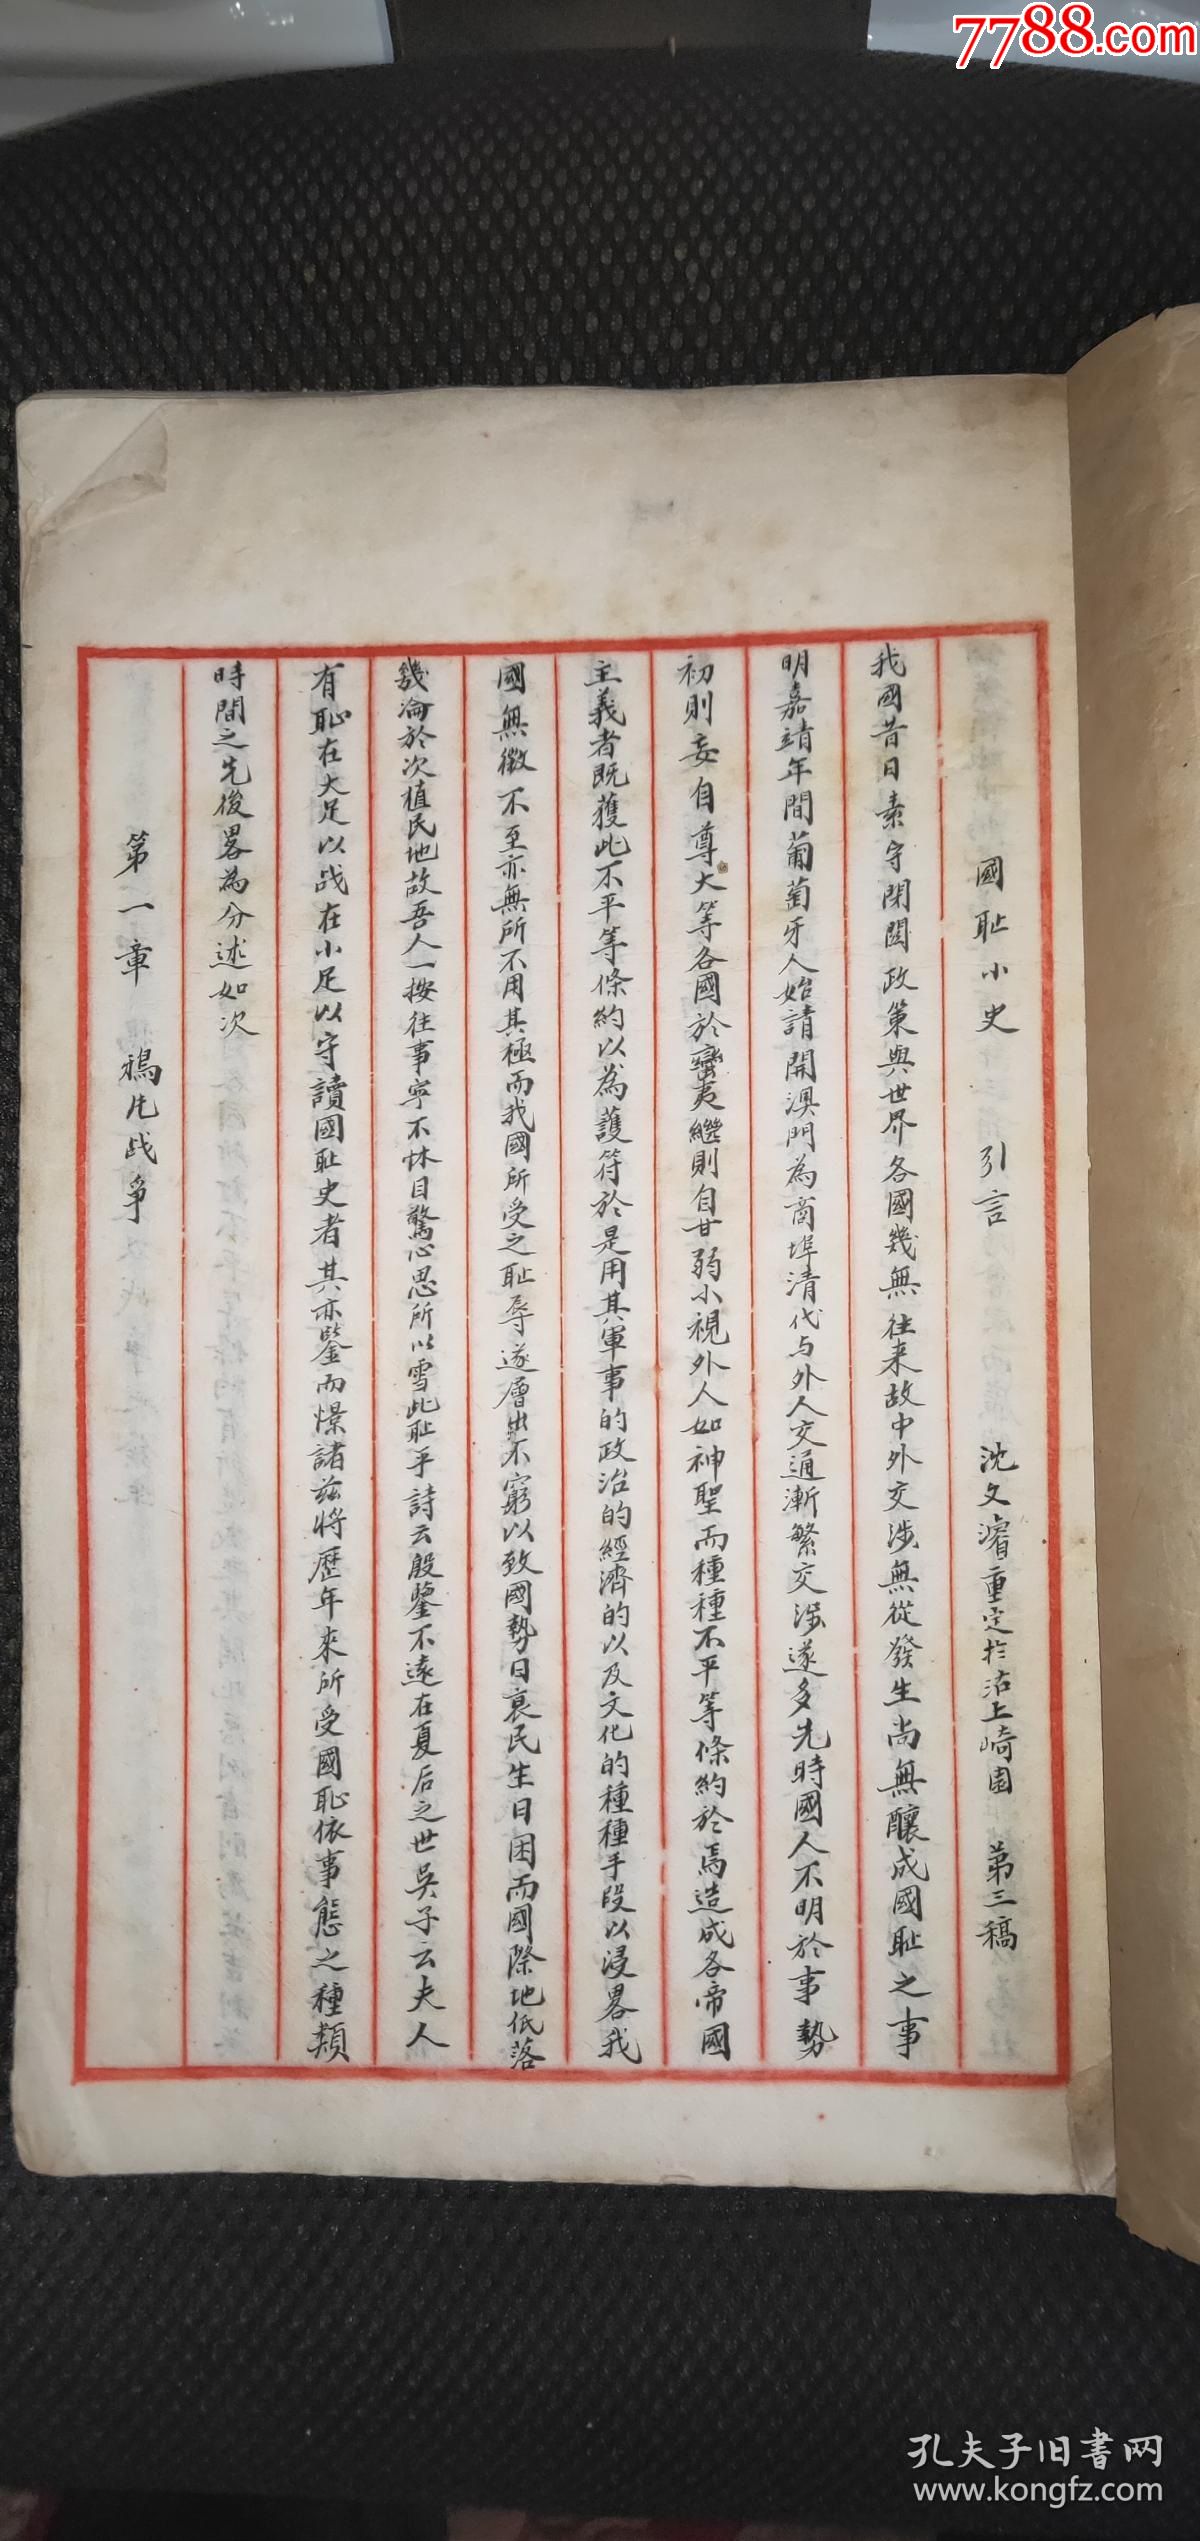 7788.com
國恥小史 引言 沈文濬重定於沽上崎園 第三稿
我國昔日素守閉関政策與世界各國幾無往来故中外交涉無從發生尚無釀成國恥之事
明嘉靖年間葡萄牙人始請開澳門為商埠清代与外人交通漸繁交涉遂多先時國人不明於事勢
初則妄自尊大等各國於蠻夷繼則自甘弱小視外人如神聖而種種不平等條約於焉造成各帝國
主義者既獲此不平等條約以為護符於是用其軍事的政治的經濟的以及文化的種種手段以浸畧我
國無徵不至亦無所不用其極而我國所受之恥辱遂層出不窮以致國勢日衰民生日困而國際地低落
幾淪於次植民地故吾人一按往事寧不怵目驚心思所以雪此恥乎詩云殷鑒不遠在夏后之世吳子云夫人
有恥在大足以战在小足以守讀國恥史者其亦鑒而憬諸茲將歷年來所受國恥依事態之種類
時間之先後畧為分述如次
第一章 鴉片战爭
孔夫子旧书网
www.kongfz.com